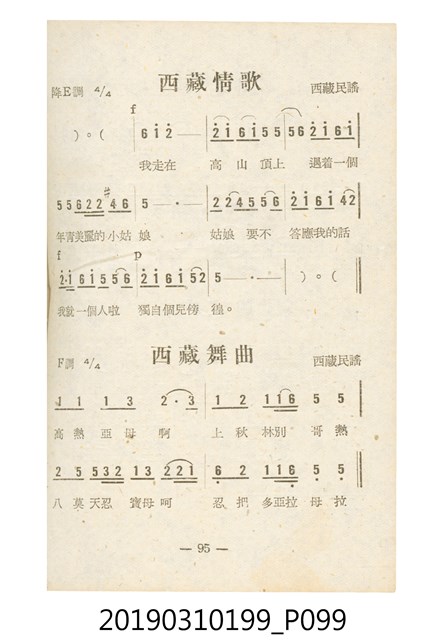 西藏情歌
降E調 4/4 西藏民謠
f
) 。 ( 6 1 2 — 2 1 6 1 5 5 5 6 2 1 6 1
我走在 高山頂上 遇着一個
5 5 6 2 2 #4 6 5 · — 2 2 4 5 5 6 2 1 6 1 4 2
年青美麗的小姑 娘 姑娘要不 答應我的話
f p
2 · 1 6 1 5 5 6 2 1 6 1 5 2 5 — · — ) 。 (
我就一個人啦 獨自個兒傍 徨。
西藏舞曲
F調 4/4 西藏民謠
1 1 1 3 2 · 3 1 2 1 1 6 5 5
高熱亞母啊 上秋林別 哥熱
2 5 5 3 2 1 3 2 2 1 6 2 1 1 6 5 5
八莫天忍寶母呵 忍把多亞拉 母拉
— 95 —
20190310199_P099